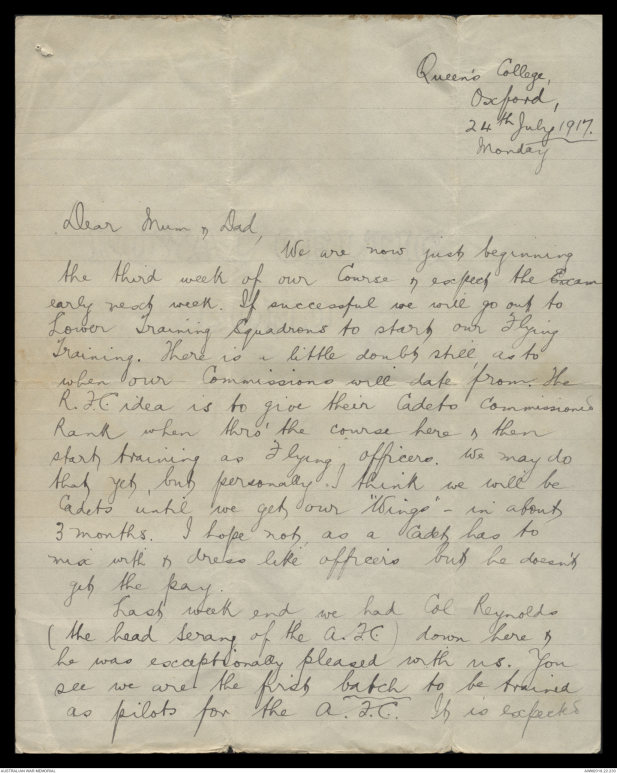 Queen's College,
Oxford,
24th July, 1917.
Monday
Dear Mum & Dad,
We are now just beginning
the third week of our Course & expect the Exam
early next week. If successful we will go out to
Lower Training Squadrons to start our Flying
Training. There is a little doubt still, as to
when our Commissions will date from. The
R.F.C idea is to give their Cadets commissioned
Rank when thro' the course here & then
start training as Flying officers. We may do
that yet, but personally I think we will be
Cadets until we get our "Wings" - in about
3 months. I hope not, as a Cadet has to
mix with & dress like officers but he doesn't
get the pay.
Last week end we had Col Reynolds
(the head Serang of the A.F.C) down here &
he was exceptionally pleased with us. You
see we are the first batch to be trained
as pilots for the A.F.C. It is expected
AUSTRALIAN WAR MEMORIAL